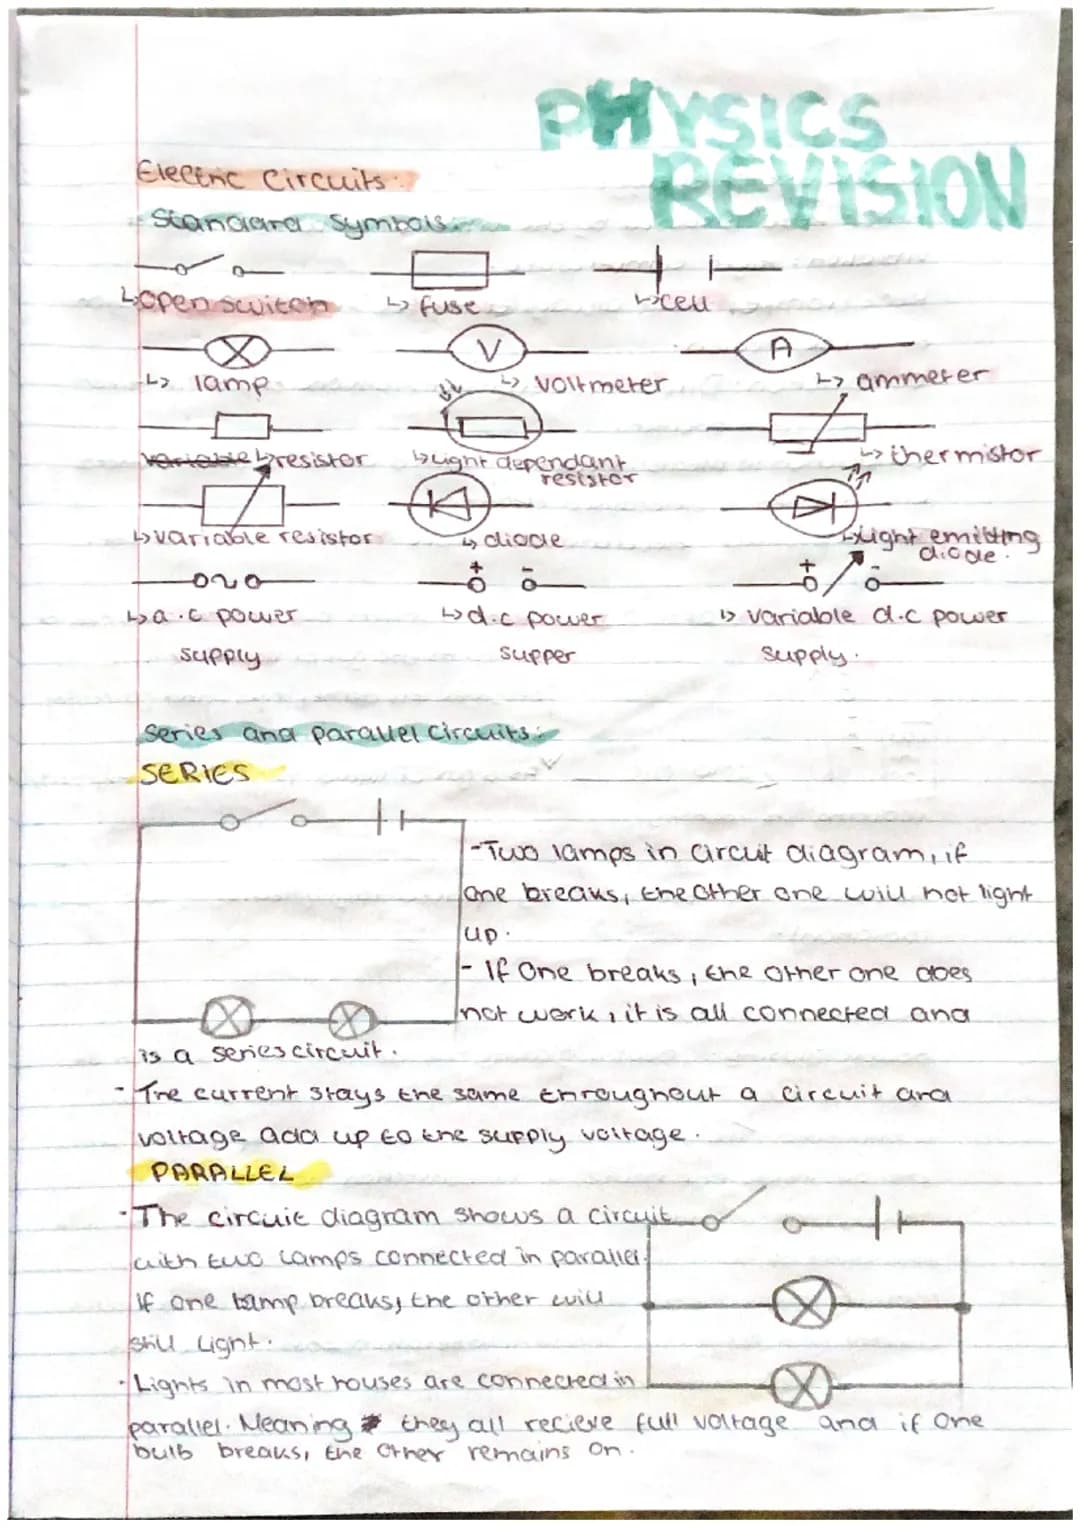 PHYSICS
REVISION
Electric Circuits:
Standard Symbols:
↳open switch ↳ fuse ↳cell
V A
↳ lamp ↳ voltmeter ↳ ammeter
variable ↳resistor ↳Light dependant ↳ thermistor
resistor
↳variable resistor ↳ diode ↳Light emitting
diode.
+ - + -
↳a.c power ↳d.c power ↳ variable d.c power
supply supper supply.
Series and parallel circuits:
SERIES
-Two lamps in circuit diagram, if
one breaks, the other one will not light
up.
- If one breaks, the other one does
not work, it is all connected and
is a series circuit.
- The current stays the same throughout a circuit and
voltage add up to the supply voltage.
PARALLEL
- The circuit diagram shows a circuit
with two lamps connected in parallel.
If one lamp breaks, the other will
still light.
- Lights in most houses are connected in
parallel. Meaning they all recieve full voltage and if one
bulb breaks, the other remains on.